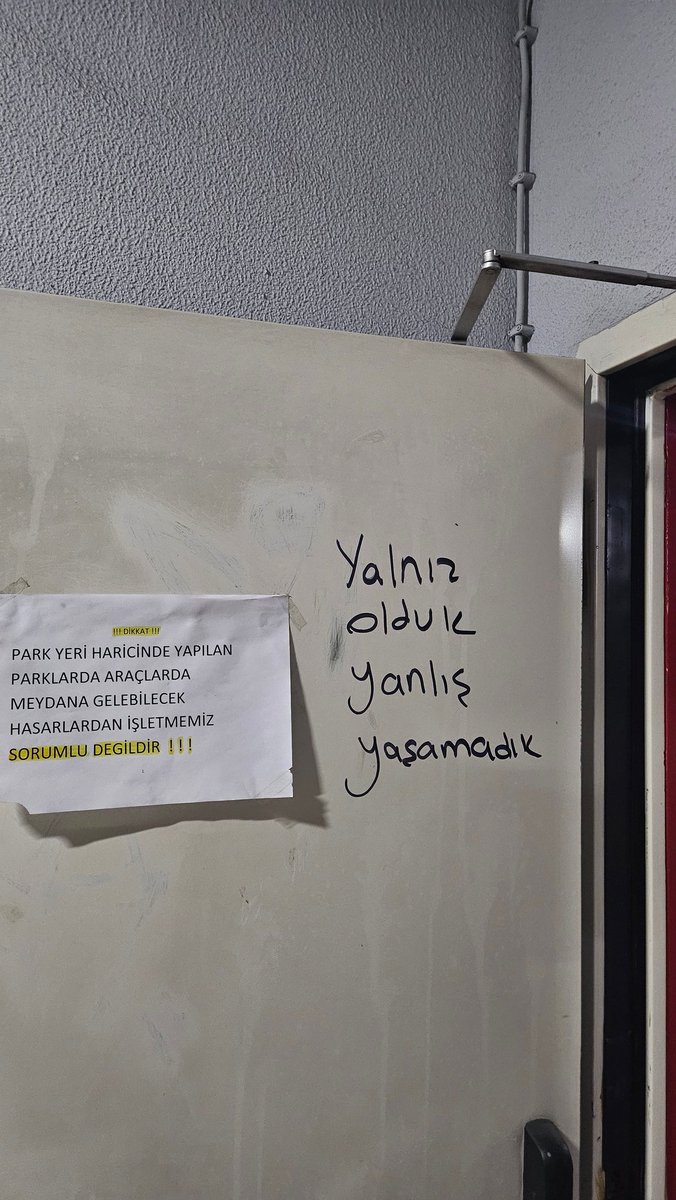 !!! DİKKAT !!!
PARK YERİ HARİCİNDE YAPILAN
PARKLARDA ARAÇLARDA
MEYDANA GELEBİLECEK
HASARLARDAN İŞLETMEMİZ
SORUMLU DEGİLDİR !!!
Yalnız
olduk
yanlış
yaşamadık